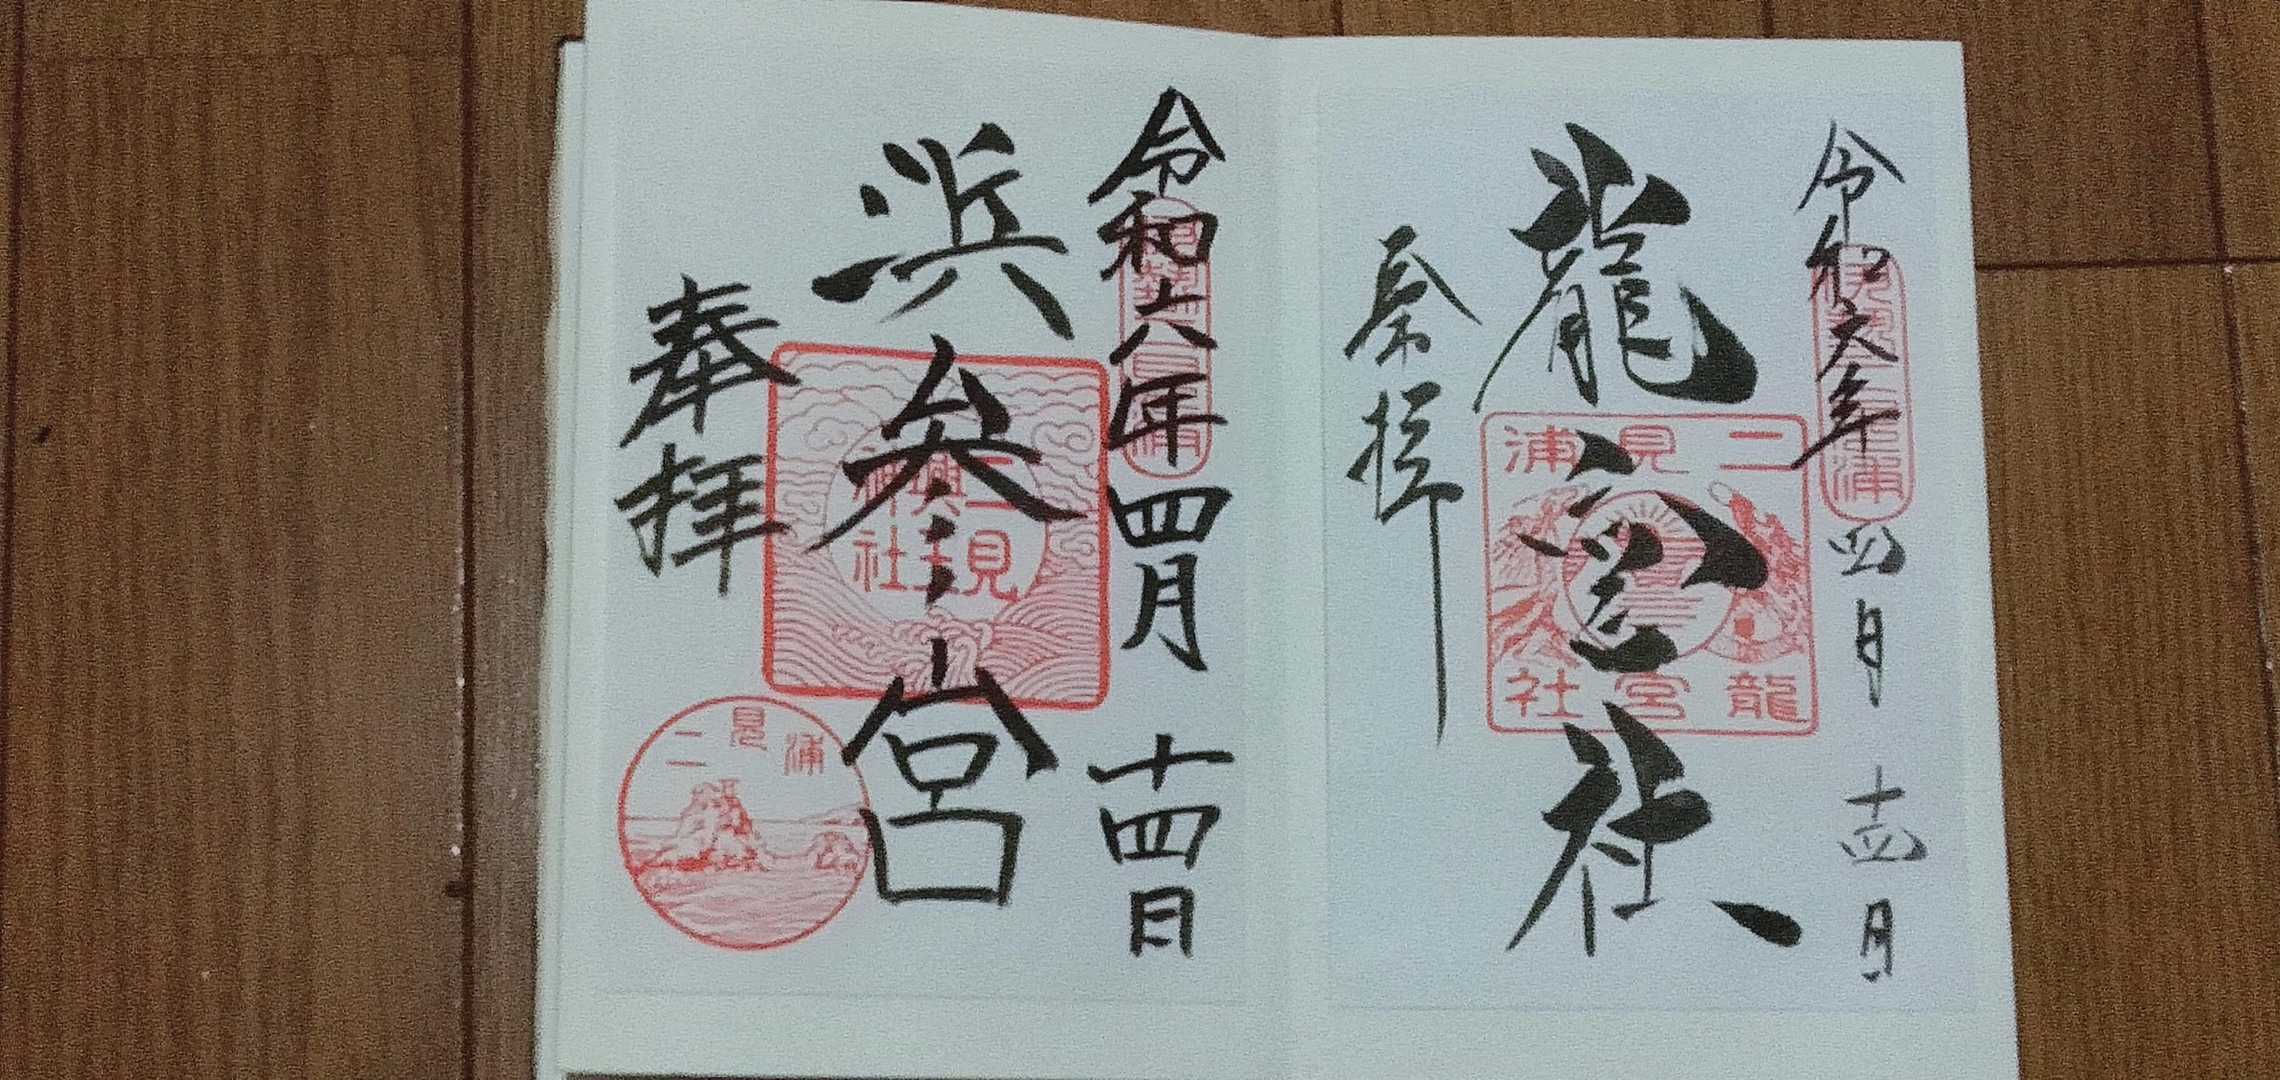 令和六年四月十四日
伊勢二見浦
龍宮社
二見浦
龍宮社
奉拝
令和六年四月十四日
伊勢二見浦
浜参宮
二見興玉神社
奉拝
二見浦